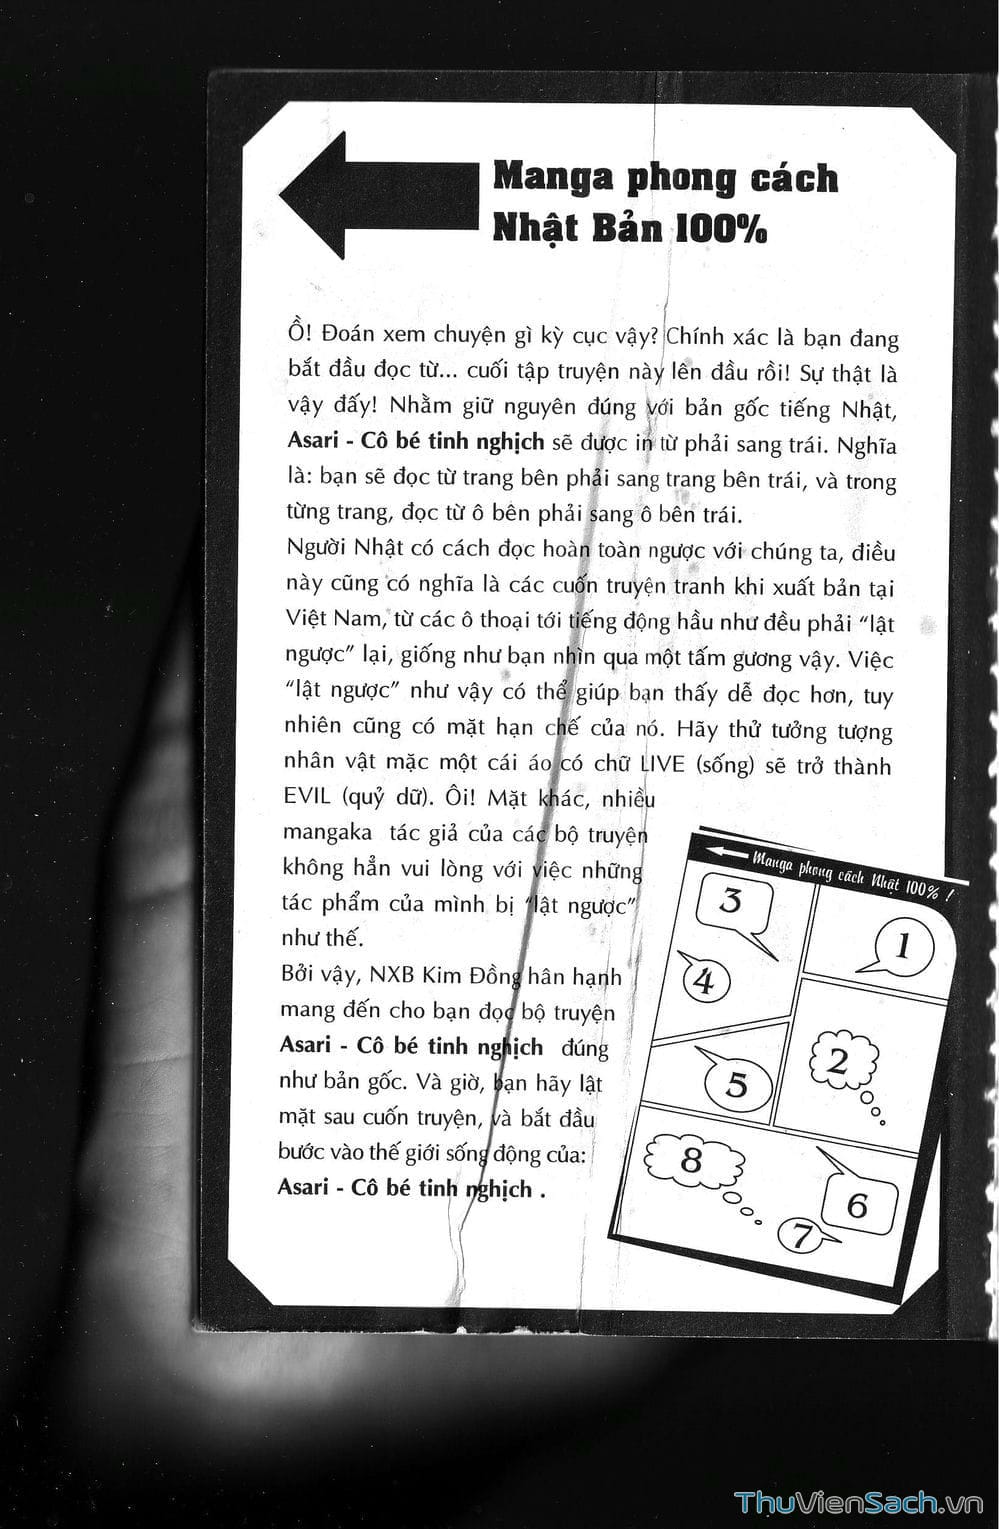 Manga phong cách
Nhật Bản 100%
Ồ! Đoán xem chuyện gì kỳ cục vậy? Chính xác là bạn đang
bắt đầu đọc từ... cuối tập truyện này lên đầu rồi! Sự thật là
vậy đấy! Nhằm giữ nguyên đúng với bản gốc tiếng Nhật,
Asari - Cô bé tinh nghịch sẽ được in từ phải sang trái. Nghĩa
là: bạn sẽ đọc từ trang bên phải sang trang bên trái, và trong
từng trang, đọc từ ô bên phải sang ô bên trái.
Người Nhật có cách đọc hoàn toàn ngược với chúng ta, điều
này cũng có nghĩa là các cuốn truyện tranh khi xuất bản tại
Việt Nam, từ các ô thoại tới tiếng động hầu như đều phải “lật
ngược” lại, giống như bạn nhìn qua một tấm gương vậy. Việc
“lật ngược” như vậy có thể giúp bạn thấy dễ đọc hơn, tuy
nhiên cũng có mặt hạn chế của nó. Hãy thử tưởng tượng
nhân vật mặc một cái áo có chữ LIVE (sống) sẽ trở thành
EVIL (quỷ dữ). Ôi! Mặt khác, nhiều
mangaka tác giả của các bộ truyện
không hẳn vui lòng với việc những
tác phẩm của mình bị “lật ngược”
như thế.
Bởi vậy, NXB Kim Đồng hân hạnh
mang đến cho bạn đọc bộ truyện
Asari - Cô bé tinh nghịch đúng
như bản gốc. Và giờ, bạn hãy lật
mặt sau cuốn truyện, và bắt đầu
bước vào thế giới sống động của:
Asari - Cô bé tinh nghịch .
Manga phong cách Nhật 100% !
1
2
3
4
5
6
7
8
ThuVienSach.vn